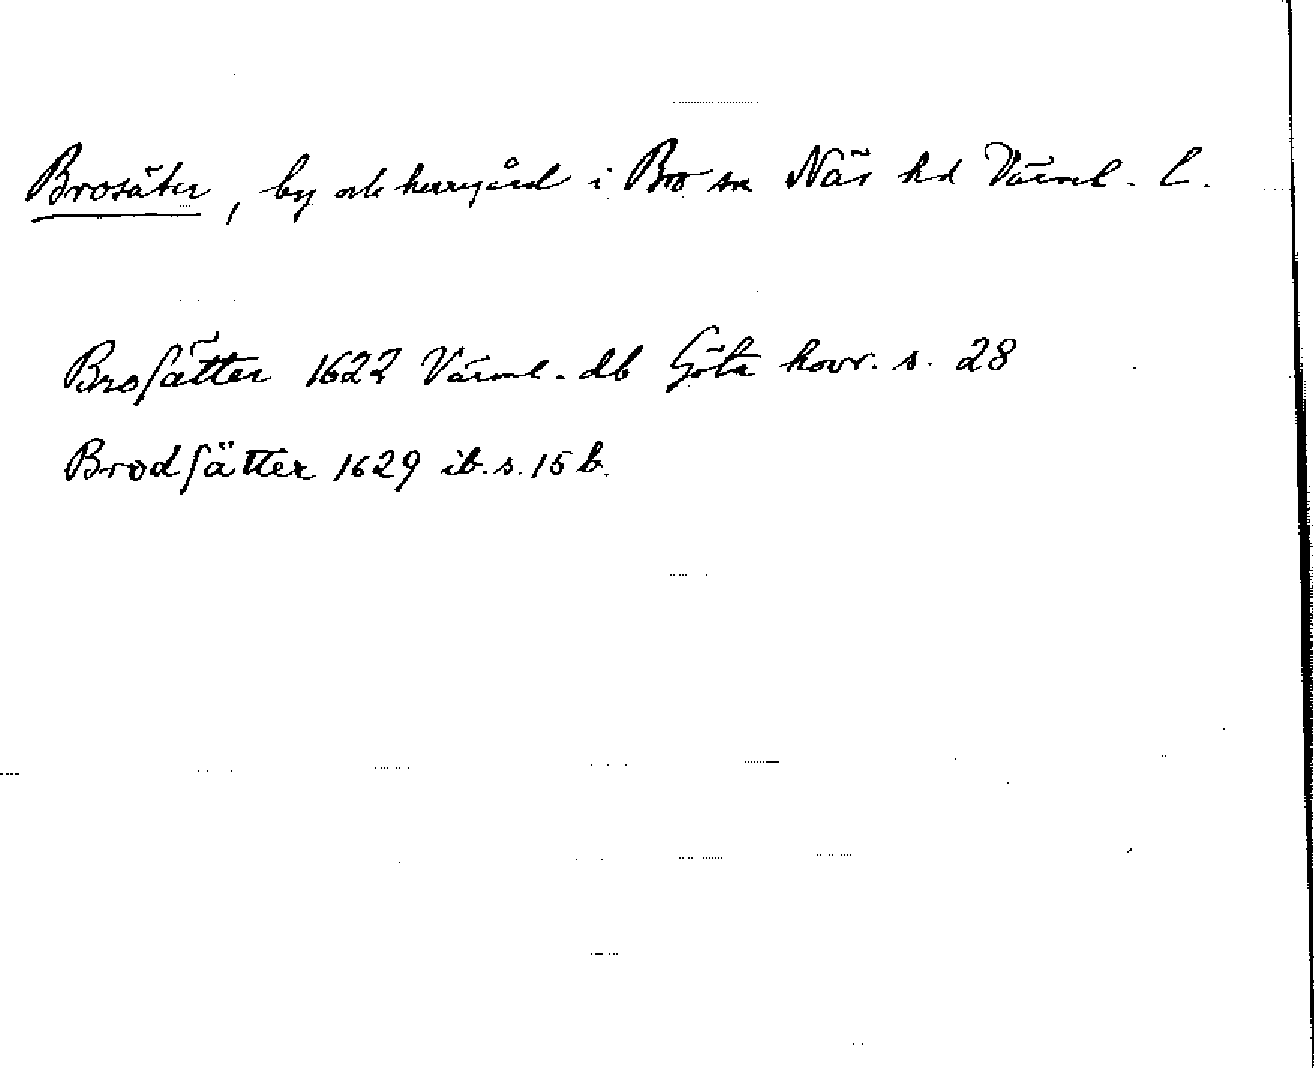 Brosäter, by och herrgård i Bro sn Näs hd Värml. l.
Broſätter 1622 Värml. db Göta hovr. s. 28
Brodſätter 1629 ib. s. 15 b.